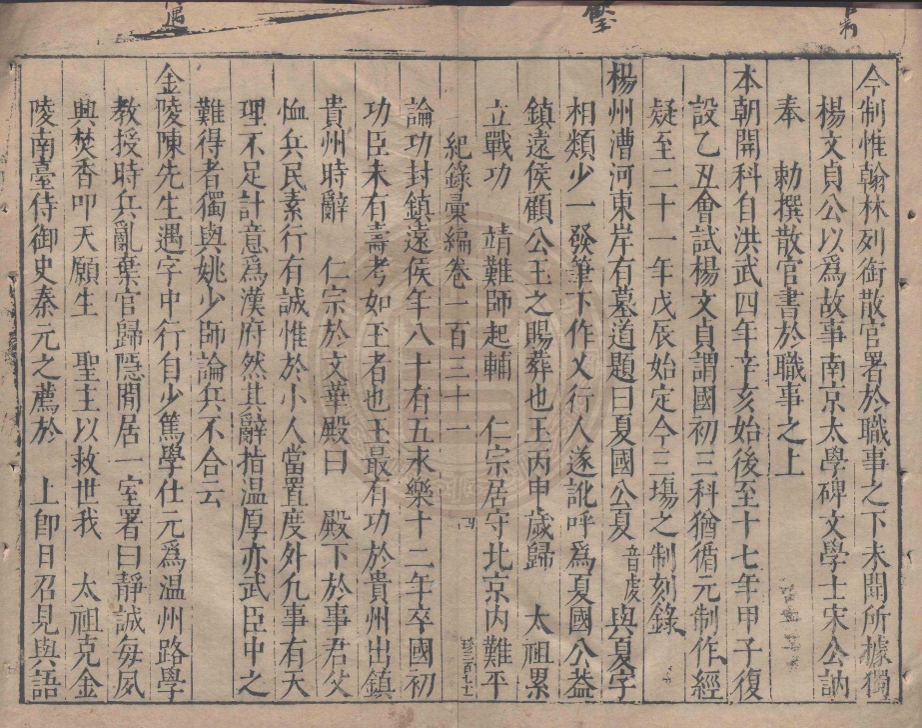 今制惟翰林列銜散官署於職事之下未聞所據獨
楊文貞公以為故事南京太學碑文學士宋公訥
奉　勅撰散官書於職事之上
本朝開科自洪武四年辛亥始後至十七年甲子復
設乙丑會試楊文貞謂國初三科猶循元制作經
疑至二十一年戊辰始定今三塲之制刻錄
楊州漕河東岸有墓道題曰夏國公夏音虔與夏字
相類少一發筆下作乂行人遂訛呼為夏國公葢
鎮遠侯顧公玉之賜葬也玉丙申歲歸　太祖累
立戰功　靖難師起輔　仁宗居守北京内難平
紀錄彙編卷一百三十一　四
論功封鎮遠侯年八十有五末樂十二年卒國初
功臣未有壽考如王者也王最有功於貴州出鎮
貴州時辭　仁宗於文華殿曰　殿下於事君父
恤兵民素行有誠惟於小人當置度外凢事有天
理不足計意爲漢府然其辭指温厚亦武臣中之
難得者獨與姚少師論兵不合云
金陵陳先生遇字中行自少篤學仕元爲温州路學
教授時兵亂棄官歸隠閒居一室署曰靜誠每夙
興焚香叩天願生　聖主以救世我　太祖克金
陵南臺侍御史秦元之薦於　上卽日召見與語